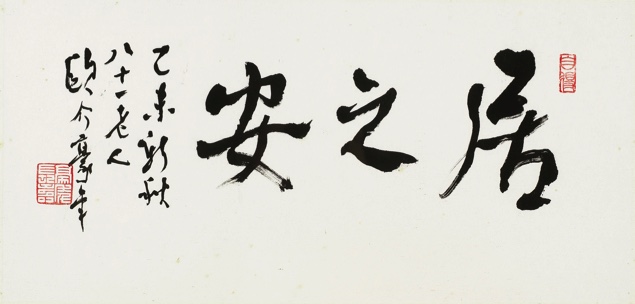 自得
居之安
乙未新秋
八十一老人
歐介豪年